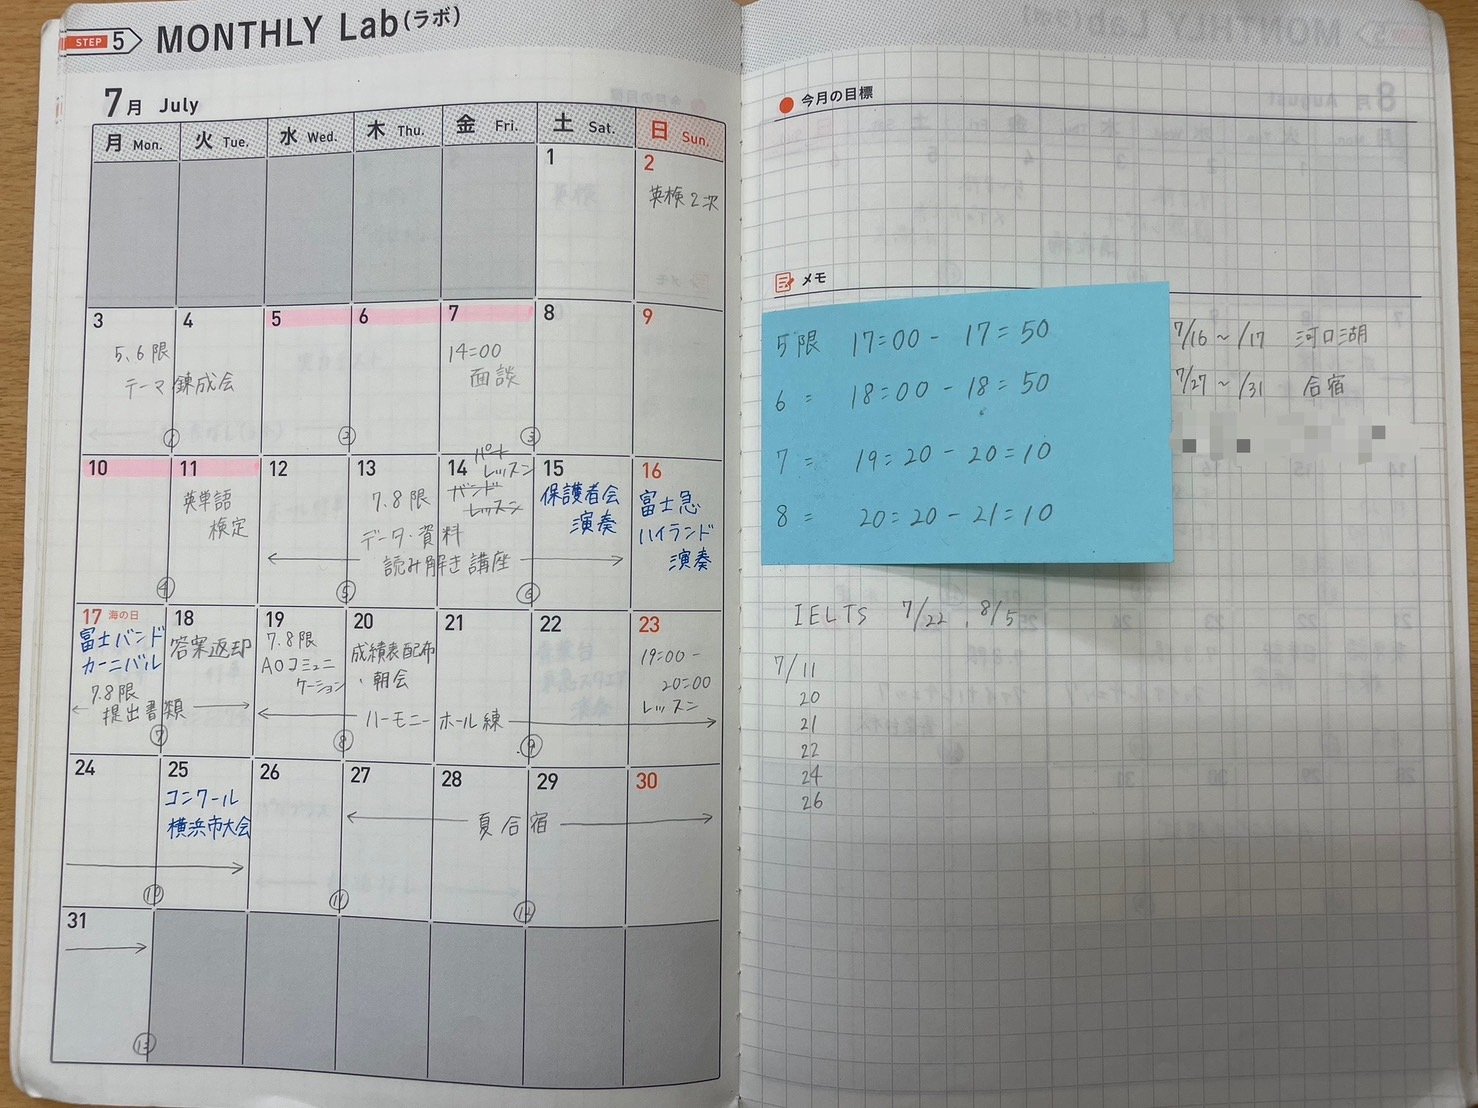 STEP 5 MONTHLY Lab(ラボ)
7月 July
月 Mon. 火 Tue. 水 Wed. 木 Thu. 金 Fri. 土 Sat. 日 Sun.
1
2
英検2次
3
5、6限
テーマ錬成会
①
4
5
②
6
7
14=00
面談
③
8
9
10
④
11
英単語
検定
12
⑤
13
7.8限
データ・資料
読み解き講座
14
パート
レッスン
バンド
レッスン
⑥
15
保護者会
演奏
16
富士急
ハイランド
演奏
17 海の日
富士バンド
カーニバル
7.8限
提出書類
⑦
18
答案返却
19
7.8限
AOコミュニ
ケーション
⑧
20
成績表配布
・朝会
ハーモニーホール練
21
⑨
22
23
19=00-
20=00
レッスン
24
⑩
25
コンクール
横浜市大会
26
⑪
27
28
夏合宿
⑫
29
30
31
⑬
今月の目標
メモ
5限 17=00 - 17=50
6 = 18=00 - 18=50
7 = 19=20 - 20=10
8 = 20=20 - 21=10
7/16~/17 河口湖
7/27~/31 合宿
IELTS 7/22 . 8/5
7/11
20
21
22
24
26